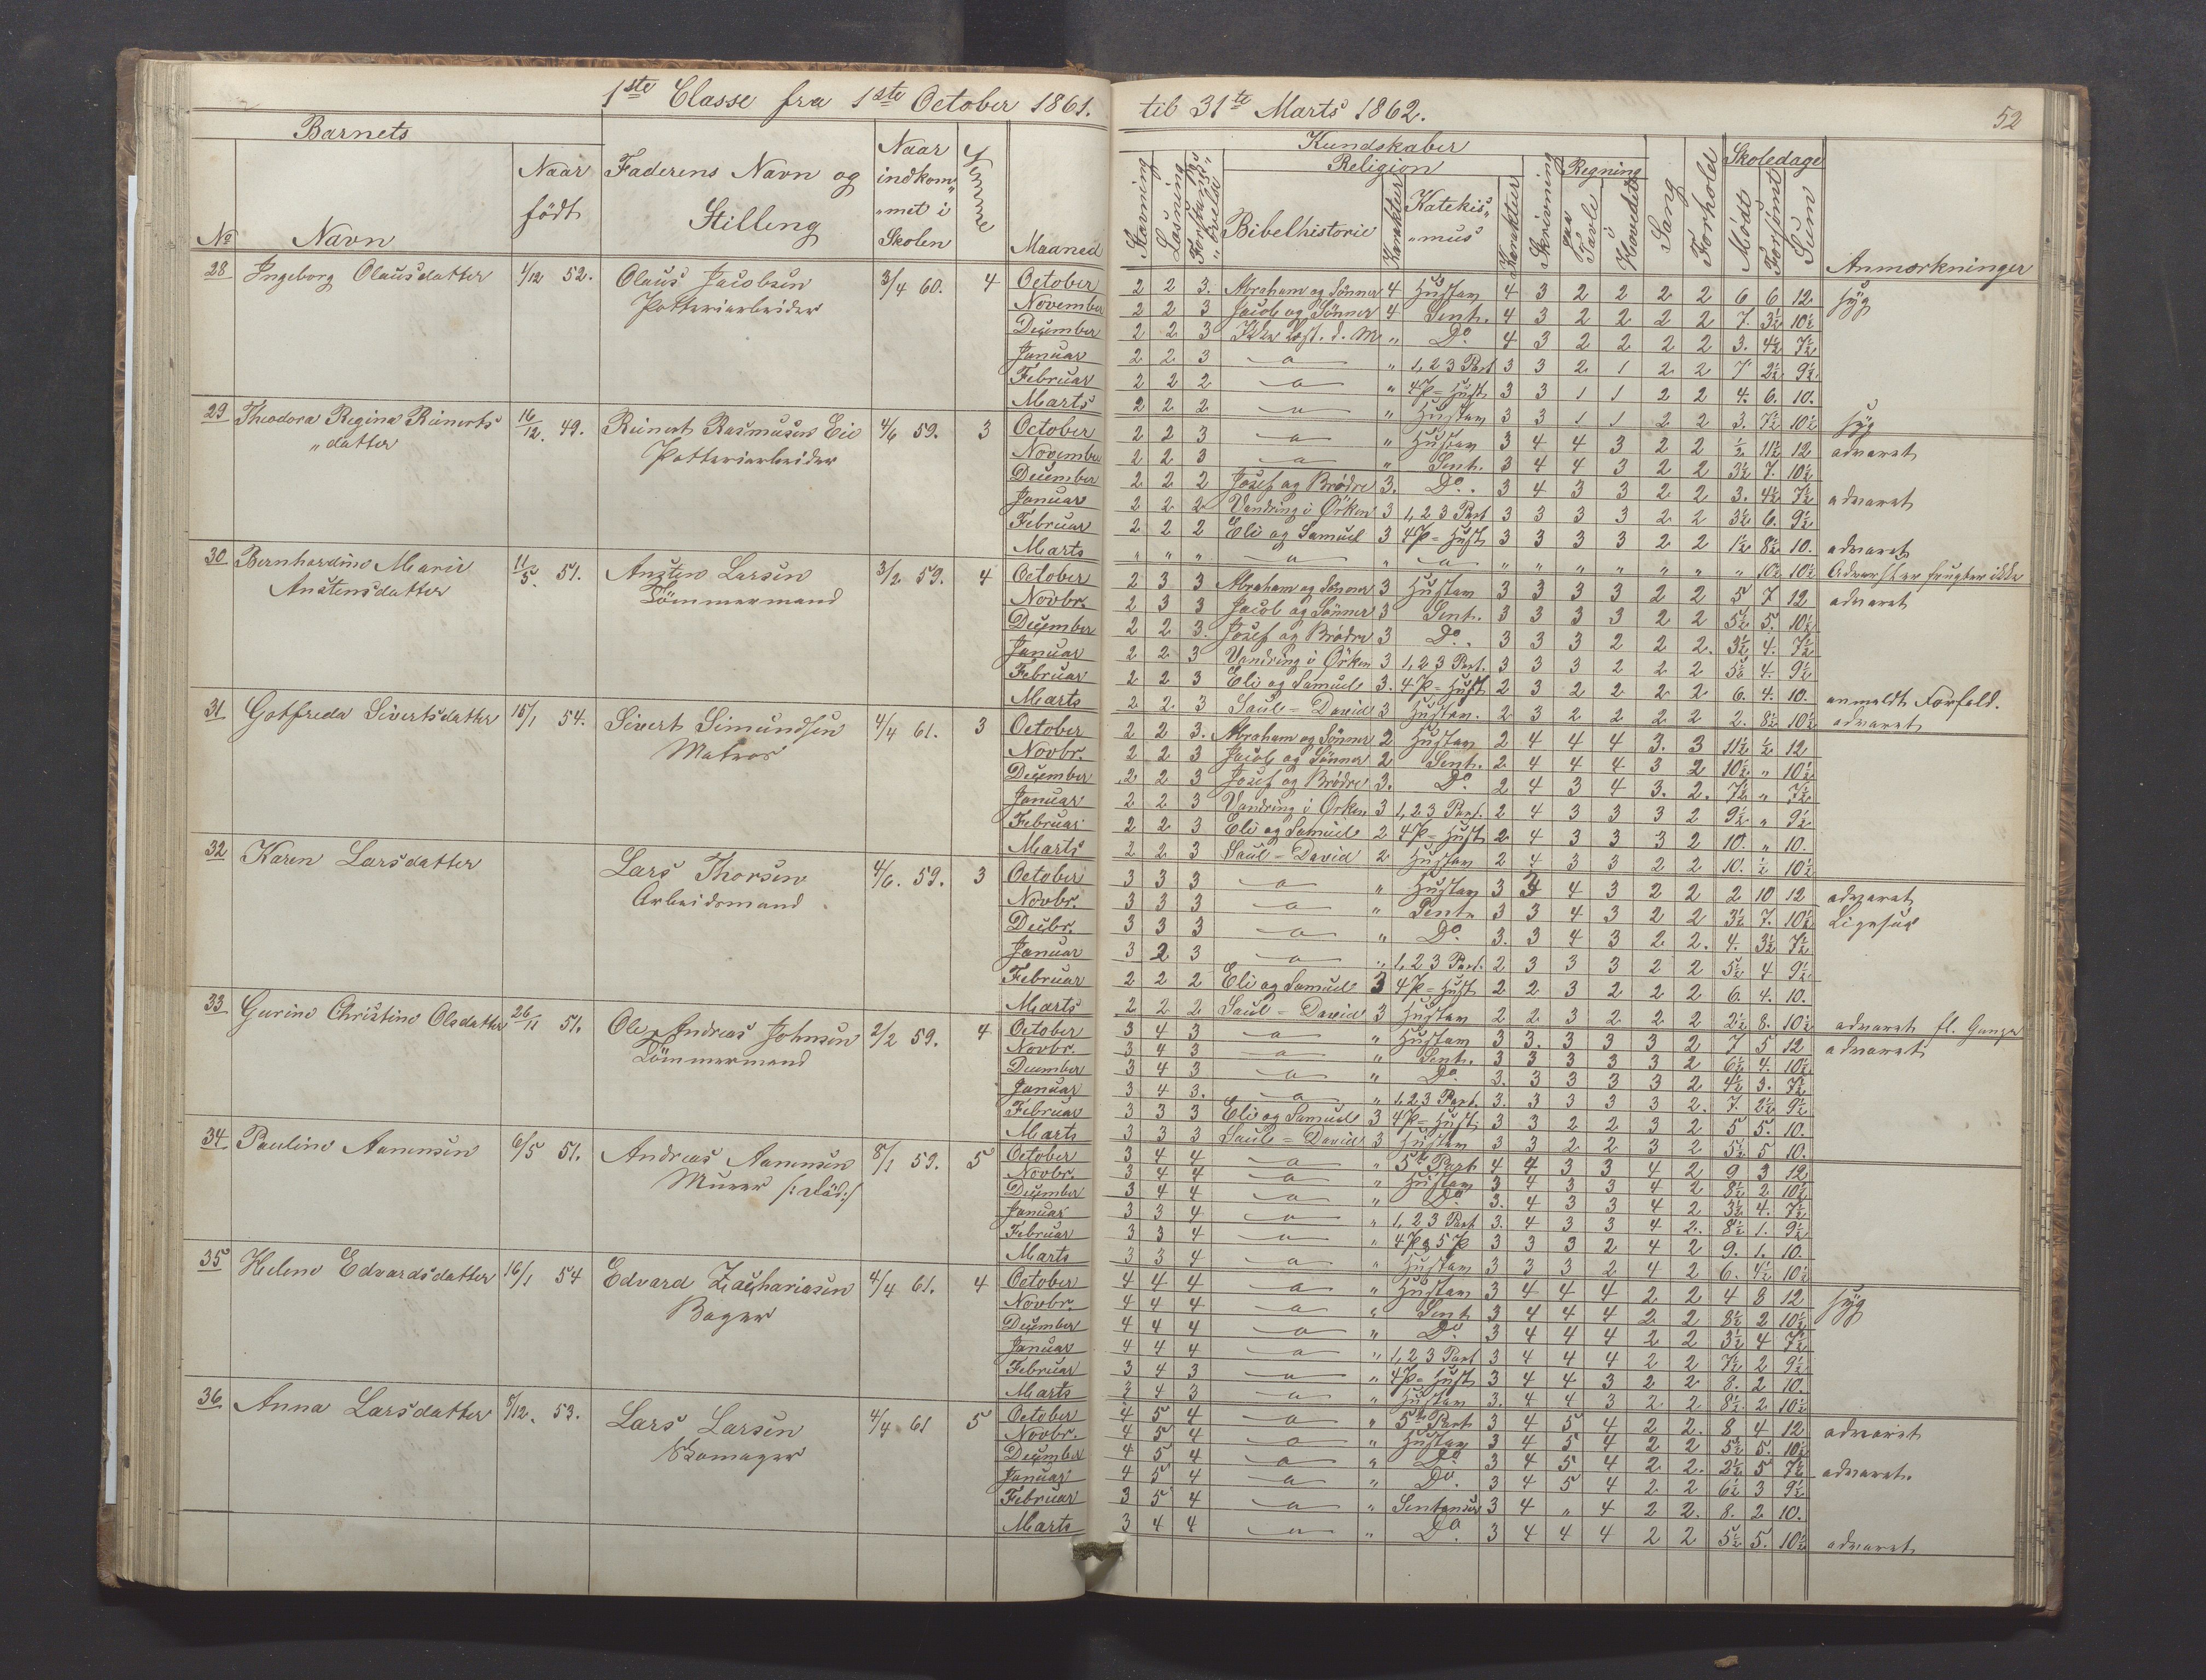 1ste Classe fra 1ste October 1861. til 31te Marts 1862. 52
Barnets
No Navn
Naar født
Faderens Navn og Stilling
Naar indkom„ „met i Skolen
Stemme
Maaned
Kundskaber
Religion
Regning
Skoledage
Stavning
Læsning
Bibelhistorie
Karakter
Katekis„ „mus
Karakter
Skrivning
paa Tavle
i Hovedet
Sang
Forhold
Mødt
Forsømt
Sum
Anmærkninger
28 Ingeborg Olausdatter 1/12 52. Olaus Jacobsen 3/4 60. 4
Potteriarbeider
October 2 2 3. Abraham og Sønner 4 4 3 2 2 2 2 6 6 12 syg
November 2 2 3 Jacob og Sønner 4 Sent. 4 3 2 2 2 2 7. 3½ 10½
December 2 2 3 „ Do 4 3 2 2 2 2 3. 4½ 7½
Januar 2 2 3 „ 1, 2 3 Part 3 3 2 1 2 2 7 2½ 9½
Februar 2 2 2 „ 3 3 1 1 2 2 4. 6. 10.
Marts 2 2 2 „ 3 3 1 1 2 2 3. 7½ 10½ syg
29 Theodora Regina Reinerts „datter 16/12. 49. Reinert Rasmusen Eie 4/6 59. 3
Potteriarbeider
October 2 2 3 „ 3 4 4 3 2 2 ½ 11½ 12 advaret
November 2 2 3 „ Sent. 3 4 4 3 2 2 3½ 7. 10½
December 2 2 2 Josef og Brødre 3. Do. 3 4 3 3 2 2 3. 4½ 7½ advaret
Januar 2 2 2 Vandring i Ørken 3 1, 2 3 Part 3 3 3 3 2 2 3½ 6. 9½
Februar 2 2 2 Eli og Samuel 3 3 3 3 3 2 2 1½ 8½ 10. advaret
Marts „ „ „ „ „ „ „ „ „ „ „ 10½ 10½
30 Bernhardine Marie Austensdatter 11/5. 51. Austen Larsen 3/2 59. 4
Tömmermand
October 2 3 3 Abraham og Sønner 3 3 3 3 3 2 2 5 7 12 advaret
Novbr. 2 3 3 Jacob og Sønner 3 Sent. 3 3 3 3 2 2 5½ 5. 10½
December 2 2 3. Josef og Brødre 3 Do. 3 3 3 2 2 2. 3½ 4. 7½
Januar 2 2 3 Vandring i Ørken 3 1, 2 3 Part. 3 3 3 2 2 2 5½ 4. 9½
Februar 2 2 3 Eli og Samuel 3. 2 3 2 2 2 2 6. 4. 10. anmeldt Forfald.
Marts 2 2 3 Saul = David 3 2 3 2 2 2 2 2. 8½ 10½ advaret
31 Gotfreda Sivertsdatter 15/1 54. Sivert Simundsen 4/4 61. 3
Matros
October 2 2 3. Abraham og Sønner 2 2 4 4 4 3. 3 11½ ½ 12
Novbr. 2 2 3 Jacob og Sønner 2 Sent. 2 4 4 4 3 2 10½ „ 10½
December 2 2 3 Josef og Brødre 3. Do 2 4 3 4 3. 2. 7½ „ 7½
Januar 2 2 3 Vandring i Ørken 3 1, 2 3 Part. 2 4 3 3 3 2 9½ „ 9½
Februar 2 2 3 Eli og Samuel 2 2 4 3 3 3 2 10. „ 10.
Marts 2 2 3 Saul = David 2 2 4 3 3 2 2 10. ½ 10½
32 Karen Larsdatter Lars Thorsen 4/6. 59. 3
Arbeidsmand
October 3 3 3 „ 3 4 3 2 2 2 10 12 advaret
Novbr. 3 3 3 „ Sent. 3 3 4 3 2 2 3½ 7. 10½
Decbr. 3 3 3 „ Do. 3. 3 4 3 2 2. 4. 3½ 7½
Januar 3 2 3 „ 1, 2 3 Part. 2 3 3 3 2 2 5½ 4 9½
Februar 2 2 2 Eli og Samuel 3 2 2 3 2 2 2 6. 4. 10.
Marts 2 2 2 Saul = David 3 2 2 3 2 2 2 2½ 8. 10½ advaret
33 Gurine Christine Olsdatter 26/11 51. Ole Andreas Johnsen 2/2 59. 4
Tömmermand
October 3 4 3 „ 3 3. 3 3 3 2 7 5 12 advaret
Novbr. 3 4 3 „ Sent. 3 3 3 3 3 2 6½ 4. 10½
December 3 4 3 „ Do 3. 3 3 3 3 2 4½ 3. 7½
Januar 3 4 3. „ 1, 2 3 Part. 3. 3 3 3 3 2. 7. 2½ 9½
Februar 3 3 3 Eli og Samuel 3 3 3 2 2 3 2 5 5. 10.
Marts 3 3 3 Saul = David 3 3 3 2 2 3 2 5½ 5 10.
34 Pauline Aamunsen 6/5 51. Andreas Aamunsen 8/1 59. 5
Murer /: död :/
October 3 4 4 „ 5te Part 4 4 3 3 4 2 9 3 12
Novbr. 3 4 4 „ 3 4 3 3 4 2 8½ 2 10½
December 3 4 4 „ Do 3. 4 3 3 4 2 3½ 4. 7½
Januar 3 3 4 „ 1, 2 3 Part 3. 4 3 3 4 2. 8½ 1. 9½
Februar 3 3 4 „ 3 3 3 2 4 2 9. 1. 10.
Marts 3 3 4 „ 3 3 3 2 4 2 6. 4½ 10½
35 Helene Edvardsdatter 16/1 54 Edvard Zachariasen 4/4 61. 4
Bager
October 4 4 4 „ 3 4 4 4 2 2 4 8 12 syg
Novbr. 4 4 4 „ Sent 3 4 4 4 2 2 8½ 2 10½
December 4 4 4 „ Do 3 4 4 4 2 2 3½ 4 7½
Januar 4 4 4 „ 1, 2 3 Part 3 4 4 4 2 2 7½ 2 9½
Februar 3 4 3 „ 3 4 4 3 2 2 8. 2 10.
Marts 3 4 3 „ 3. 4 4 3 2 2 8½ 2 10½
36 Anna Larsdatter 8/12. 53. Lars Larsen 4/4 61 5
Skomager
October 4 5 4 „ 5te Part 3 4 5 4 2 2. 8 4 12 advaret
Novbr. 4 5 4 „ 3 4 5 4 2 2 5½ 5. 10½
December 4 5 4 „ Do 3 4 5 4 2 2. 2½ 5 7½ advaret.
Januar 4 5 4 „ Do. 3 4 5 4 2 2 6½ 3 9½
Februar 3 5 4 „ Sentenser 3 4 „ 4 2 2. 8. 2 10.
Marts 3 4 4 „ Do. 3 4 4 4 2 2 5½ 5. 10½ advaret